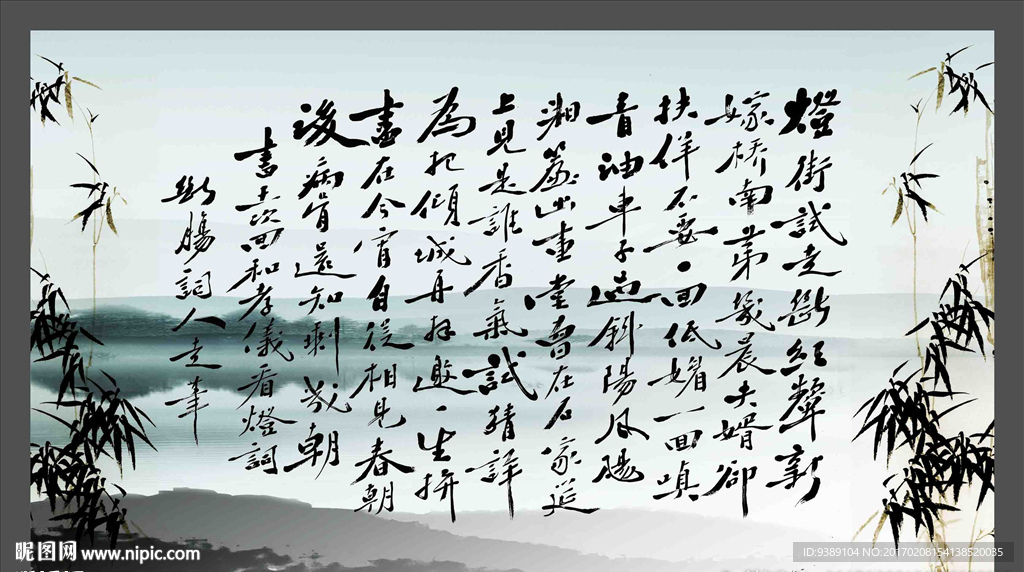 燈街試走斷紅顰新
嫁橋南第幾晨夫婿卻
扶佯不要一回低媚一回嗔
香油車子過斜陽風颺
湘簾出重堂曾在石家筵
上見是誰香氣試猜詳
為把傾城再拜邀一生拼
盡在今宵自從相見春朝
後病肯還知剩幾朝
書王次回和孝儀看燈詞
斷腸詞人走筆
昵图网 www.nipic.com
ID:9389104 NO:20170208154138520035